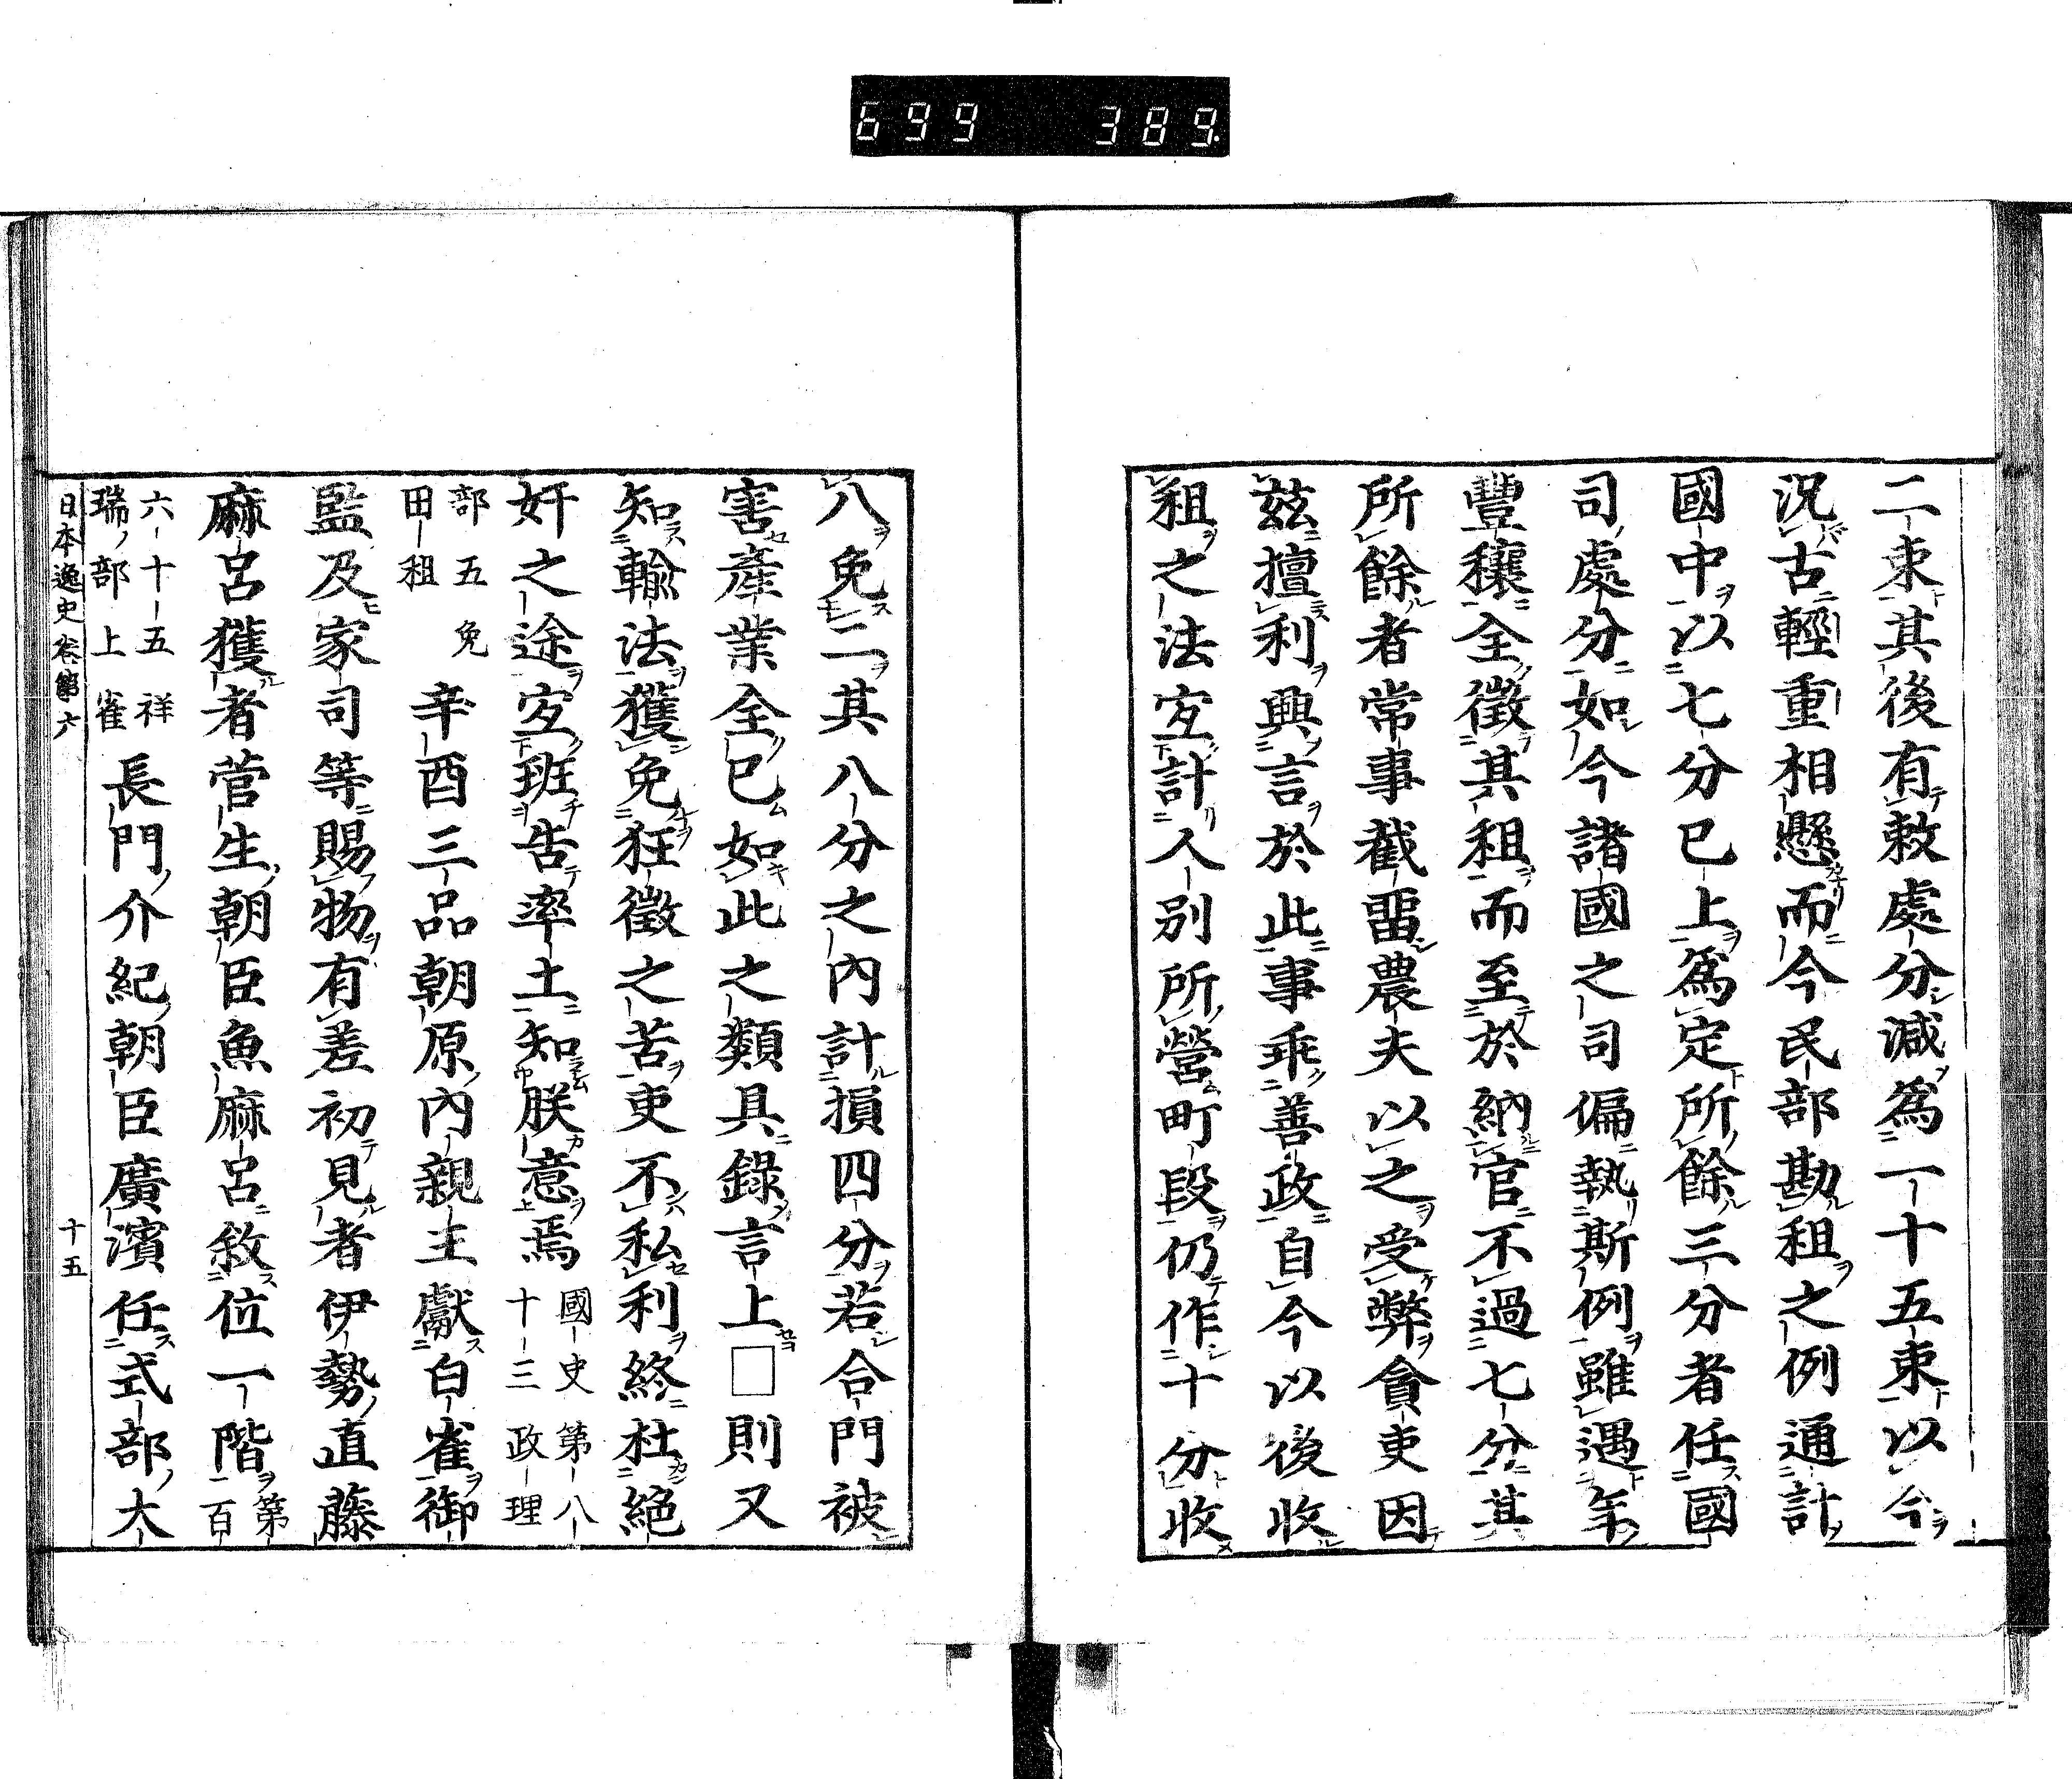 699 389
二束其後有敕處分減爲一十五束以今
況古輕重相懸而今民部勘租之例通計
國中以七分已上爲定所餘三分者任國
司處分如今諸國之司偏執斯例雖遇年
豐穰全徵其租而至於納官不過七分其
所餘者常事截留農夫以之受弊貪吏因
茲擅利興言於此事乖善政自今以後收
租之法宜計人別所營町段仍作十分收
八免二其八分之內計損四分若合門被
害產業全已如此之類具錄言上□則又
知輸法獲免狂徵之苦吏不私利終杜絕
奸之途宜班告率土知朕意焉國史第八十三政理
部五免田租 辛酉三品朝原內親王獻白雀御
監及家司等賜物有差初見者伊勢直藤
麻呂獲者菅生朝臣魚麻呂敘位一階第一百
六十五祥瑞部上雀 長門介紀朝臣廣濱任式部大
日本逸史卷第六 十五